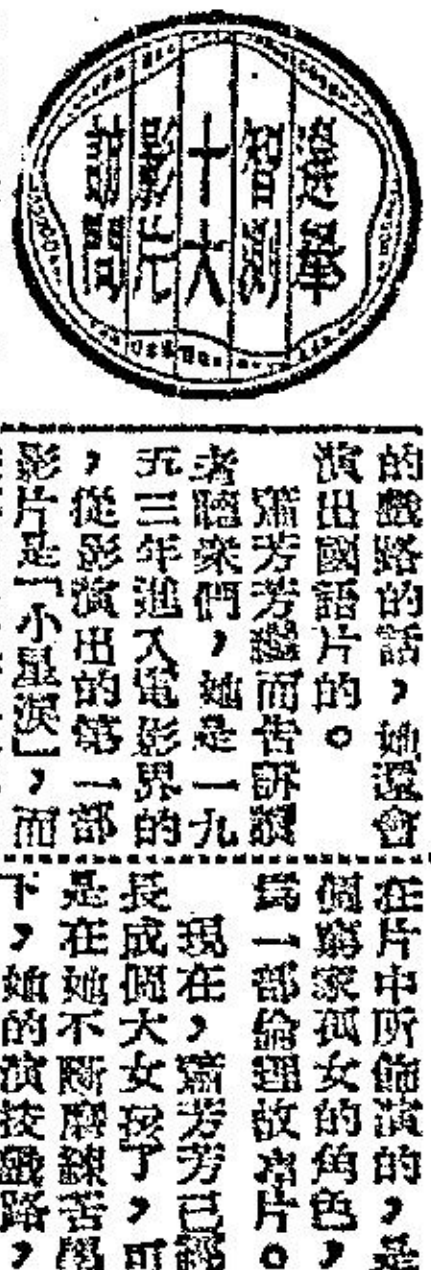 選舉
智測
十大
影片
訪問
的戲路的話，她還會
演出國語片的。
蕭芳芳繼而告訴讀
者聽衆們，她是一九
五三年進入電影界的
，從影演出的第一部
影片是「小星淚」，而
在片中所飾演的，是
個窮家孤女的角色，
爲一部倫理故事片。
現在，蕭芳芳已經
長成個大女孩了，可
是在她不斷磨鍊苦學
下，她的演技戲路，